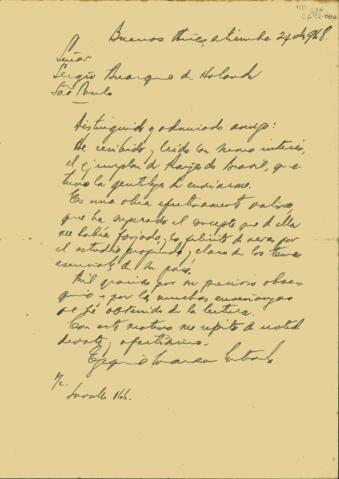 Buenos Aires, setiembre 24 de 1948.
Señor
Sergio Buarque de Holanda
São Paulo
Distinguido y admirado amigo:
He recibido y leído con sumo interés,
el ejemplar de Raizes do Brasil, que
tuvo la gentileza de enviarme.
Es una obra efectivamente valiosa
que ha superado el concepto que de ella
me había forjado; lo felicito de veras por
el estudio profundo y claro de los temas
esenciales de su país.
Mil gracias por su precioso obse-
quio y por las muchas enseñanzas
que he obtenido de la lectura.
Con este motivo me repito de usted
devoto y afectísimo.
Ezequiel Martínez Estrada
s/c.
Lavalle 166.